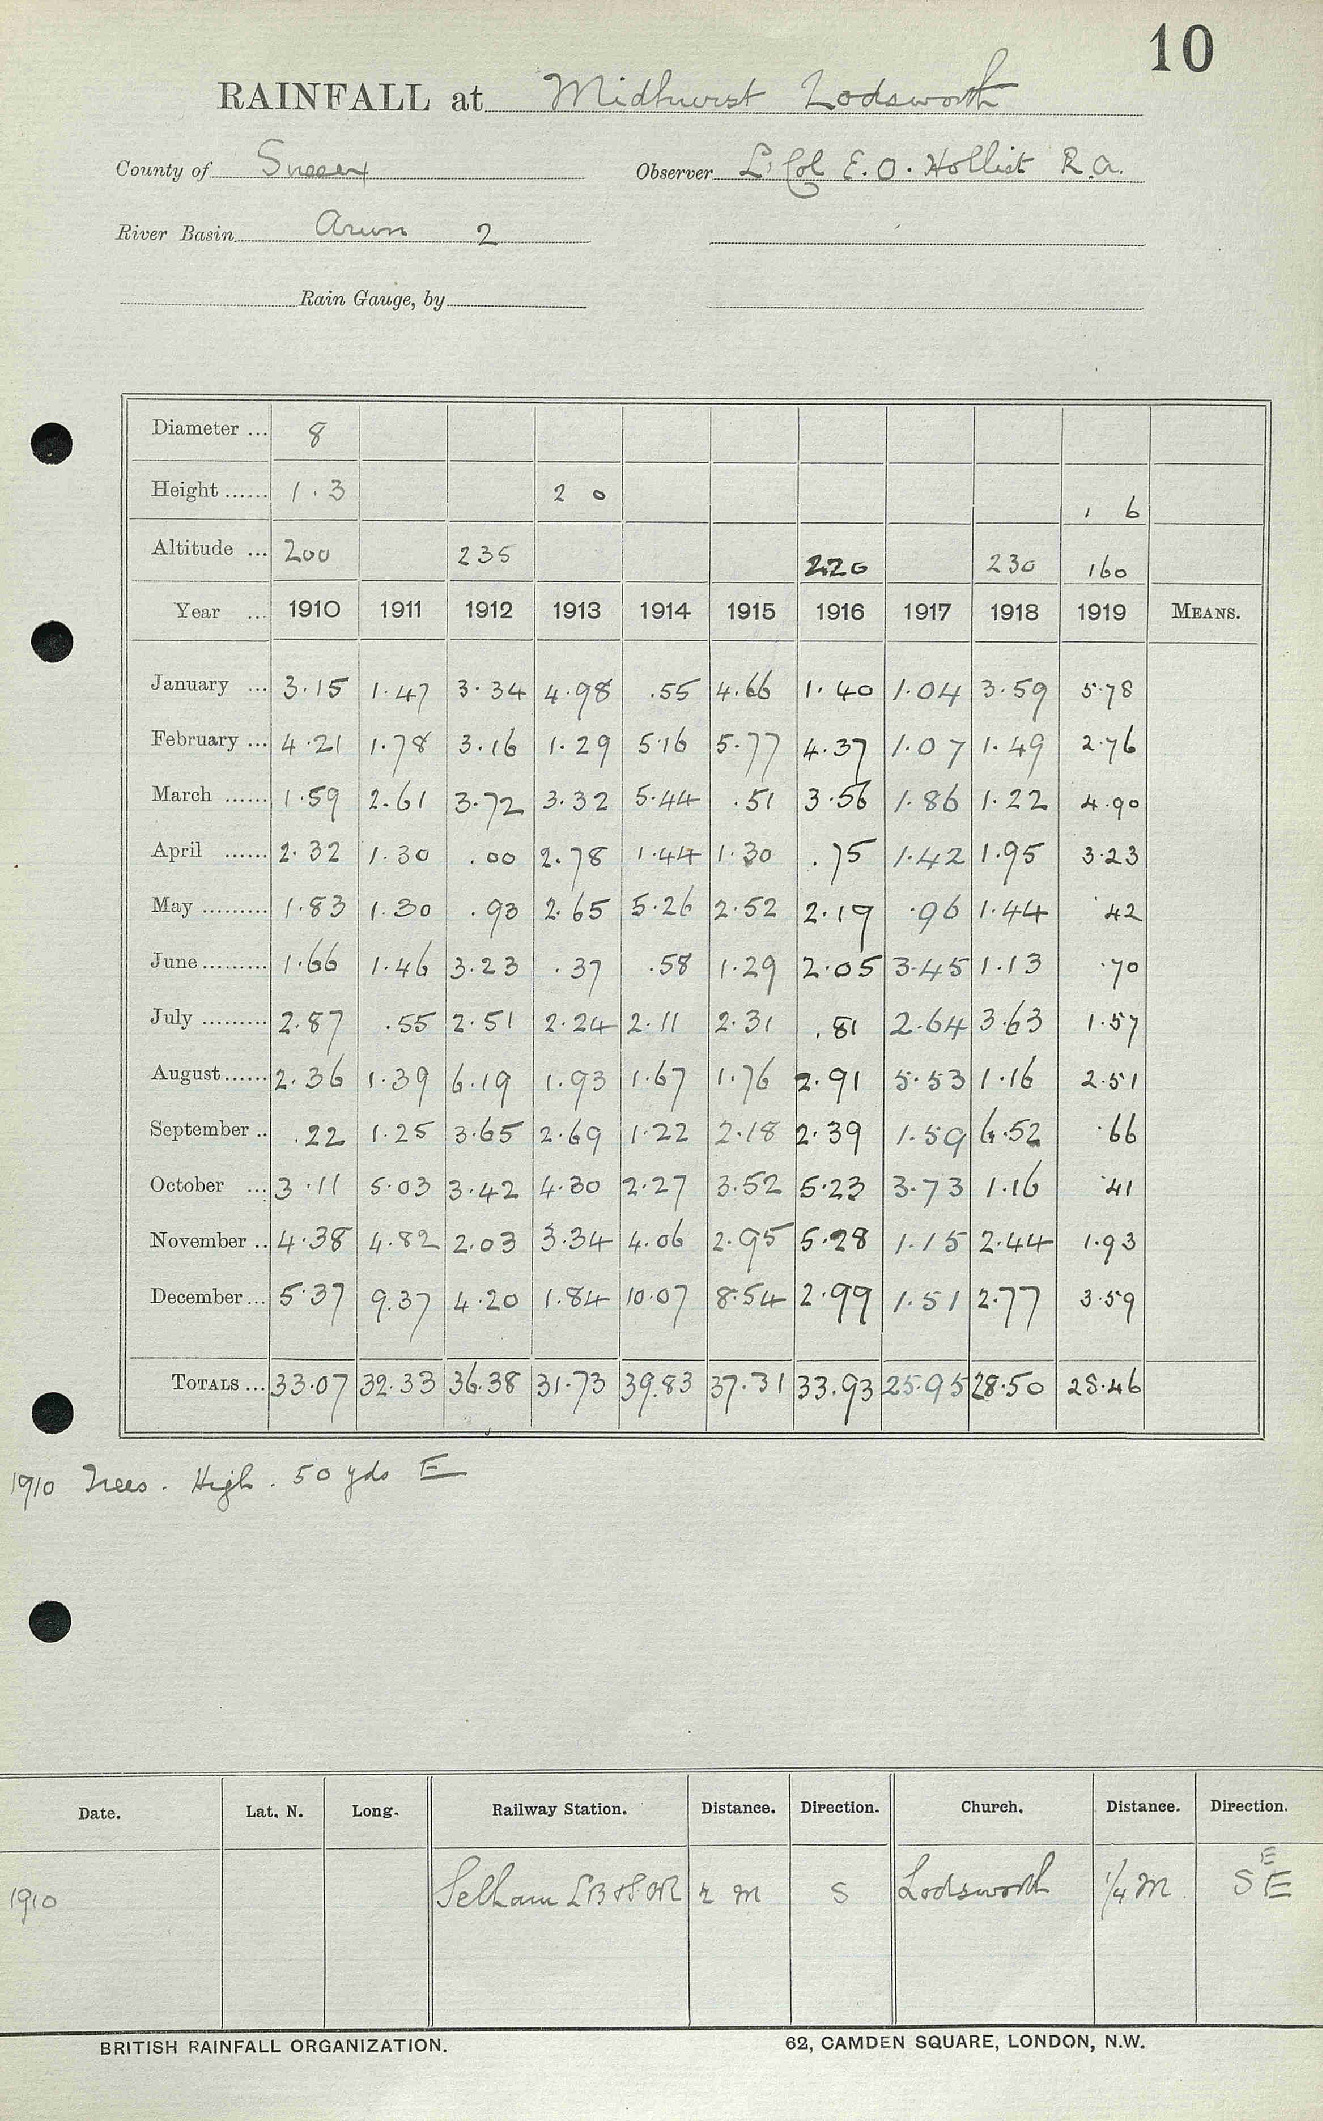 10
RAINFALL at Midhurst Lodsworth
County of Sussex Observer Lt Col E. O. Hollist R.A.
River Basin Arun 2
Rain Gauge, by
Diameter ... 8
Height ...... 1.3 2 0 1 6
Altitude ... 200 235 220 230 160
Year ... 1910 1911 1912 1913 1914 1915 1916 1917 1918 1919 MEANS.
January ... 3.15 1.47 3.34 4.98 .55 4.66 1.40 1.04 3.59 5.78
February ... 4.21 1.78 3.16 1.29 5.16 5.77 4.37 1.07 1.49 2.76
March ...... 1.59 2.61 3.72 3.32 5.44 .51 3.56 1.86 1.22 4.90
April ...... 2.32 1.30 .00 2.78 1.44 1.30 .75 1.42 1.95 3.23
May ......... 1.83 1.30 .93 2.65 5.26 2.52 2.19 .96 1.44 .42
June ......... 1.66 1.46 3.23 .37 .58 1.29 2.05 3.45 1.13 .70
July ......... 2.87 .55 2.51 2.24 2.11 2.31 .81 2.64 3.63 1.57
August ...... 2.36 1.39 6.19 1.93 1.67 1.76 2.91 5.53 1.16 2.51
September .. .22 1.25 3.65 2.69 1.22 2.18 2.39 1.59 6.52 .66
October ... 3.11 5.03 3.42 4.30 2.27 3.52 5.23 3.73 1.16 .41
November .. 4.38 4.82 2.03 3.34 4.06 2.95 5.28 1.15 2.44 1.93
December ... 5.37 9.37 4.20 1.84 10.07 8.54 2.99 1.51 2.77 3.59
TOTALS ... 33.07 32.33 36.38 31.73 39.83 37.31 33.93 25.95 28.50 28.46
1910 Trees. High. 50 yds E
Date. Lat. N. Long. Railway Station. Distance. Direction. Church. Distance. Direction.
1910 Selham LB&SCR 2 m S Lodsworth 1/4 m S E E
BRITISH RAINFALL ORGANIZATION. 62, CAMDEN SQUARE, LONDON, N.W.